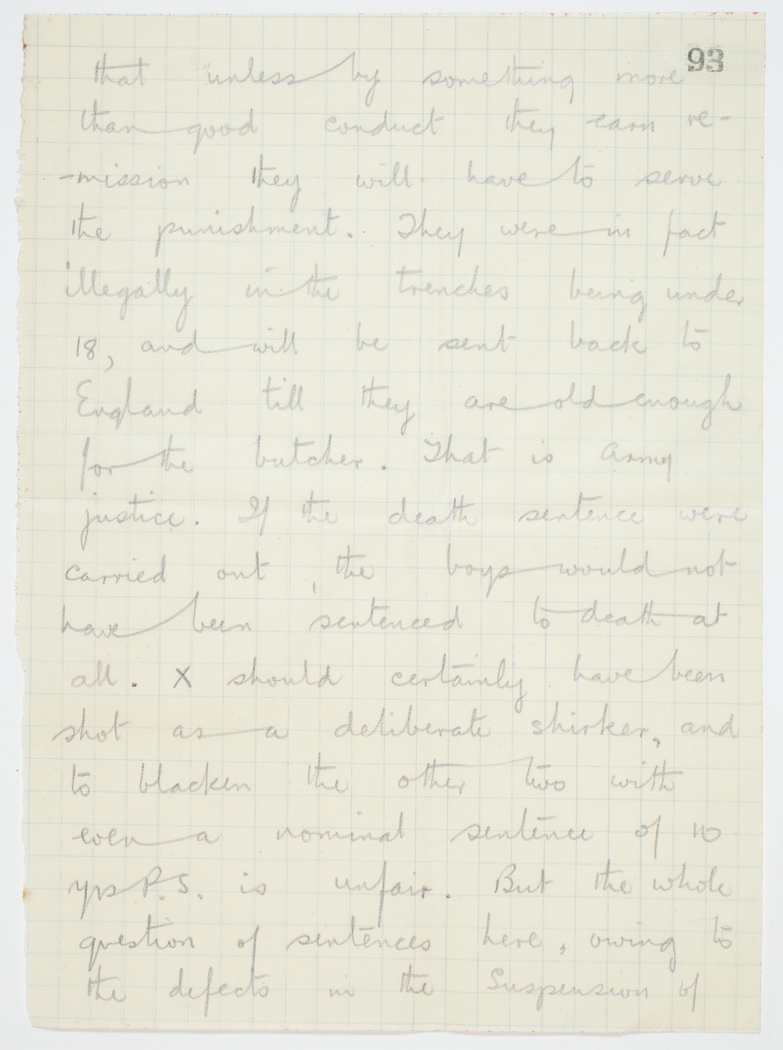 93
that unless by something more
than good conduct they earn re-
-mission they will have to serve
the punishment. They were in fact
illegally in the trenches being under
18, and will be sent back to
England till they are old enough
for the butcher. That is Army
justice. If the death sentence were
carried out, the boys would not
have been sentenced to death at
all. X should certainly have been
shot as a deliberate shirker, and
to blacken the other two with
even a nominal sentence of 10
yrs P.S. is unfair. But the whole
question of sentences here, owing to
the defects in the Suspension of